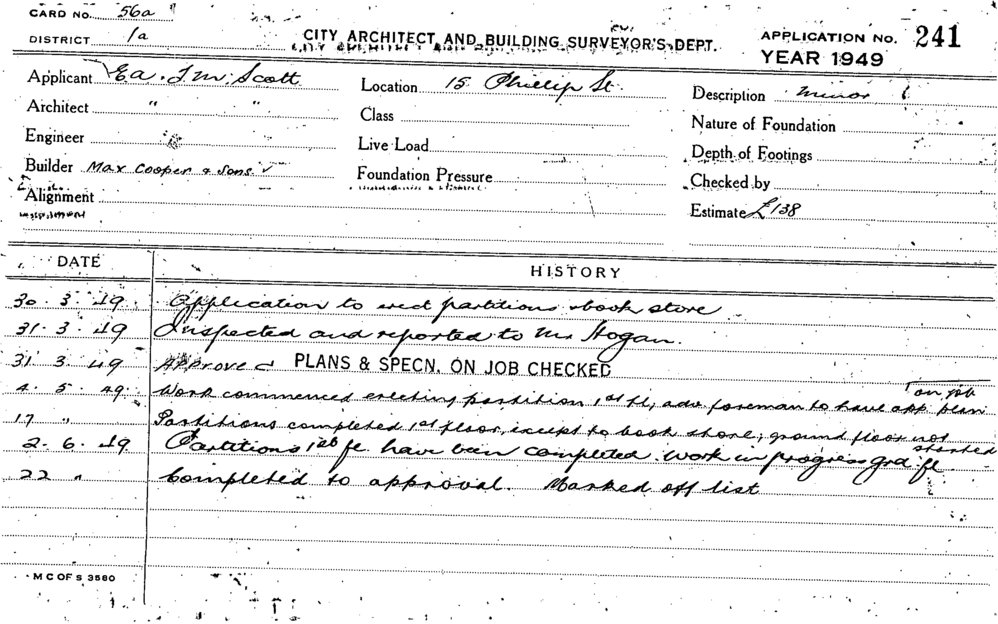 CARD NO. 56a
DISTRICT 1a
CITY ARCHITECT AND BUILDING SURVEYOR'S DEPT.
APPLICATION NO. 241
YEAR 1949
Applicant Ea. J. M. Scott
Location 15 Phillip St.
Description minor
Architect " "
Class
Nature of Foundation
Engineer
Live Load
Depth of Footings
Builder Max Cooper & Sons
Foundation Pressure
Checked by
Alignment
Estimate £138
DATE HISTORY
30. 3. 49 Application to erect partitions & book store
31. 3. 49 Inspected and reported to Mr Hogan.
31 3 49 Approved PLANS & SPECN. ON JOB CHECKED
4. 5. 49. Work commenced erecting partition 1st fl, adv. foreman to have app. plan on job
17 " Partitions completed 1st floor, except to book store; ground floor not started
2. 6. 49 Partitions 1st fl. have been completed. Work in progress grd. fl.
22 " Completed to approval. Marked off list
M C OF S 3580